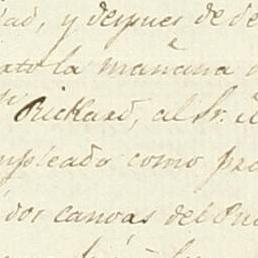 dad, y despues de de
ato la mañana
Rickard, al Sr.
mpleado como pro
dos canoas del Pue